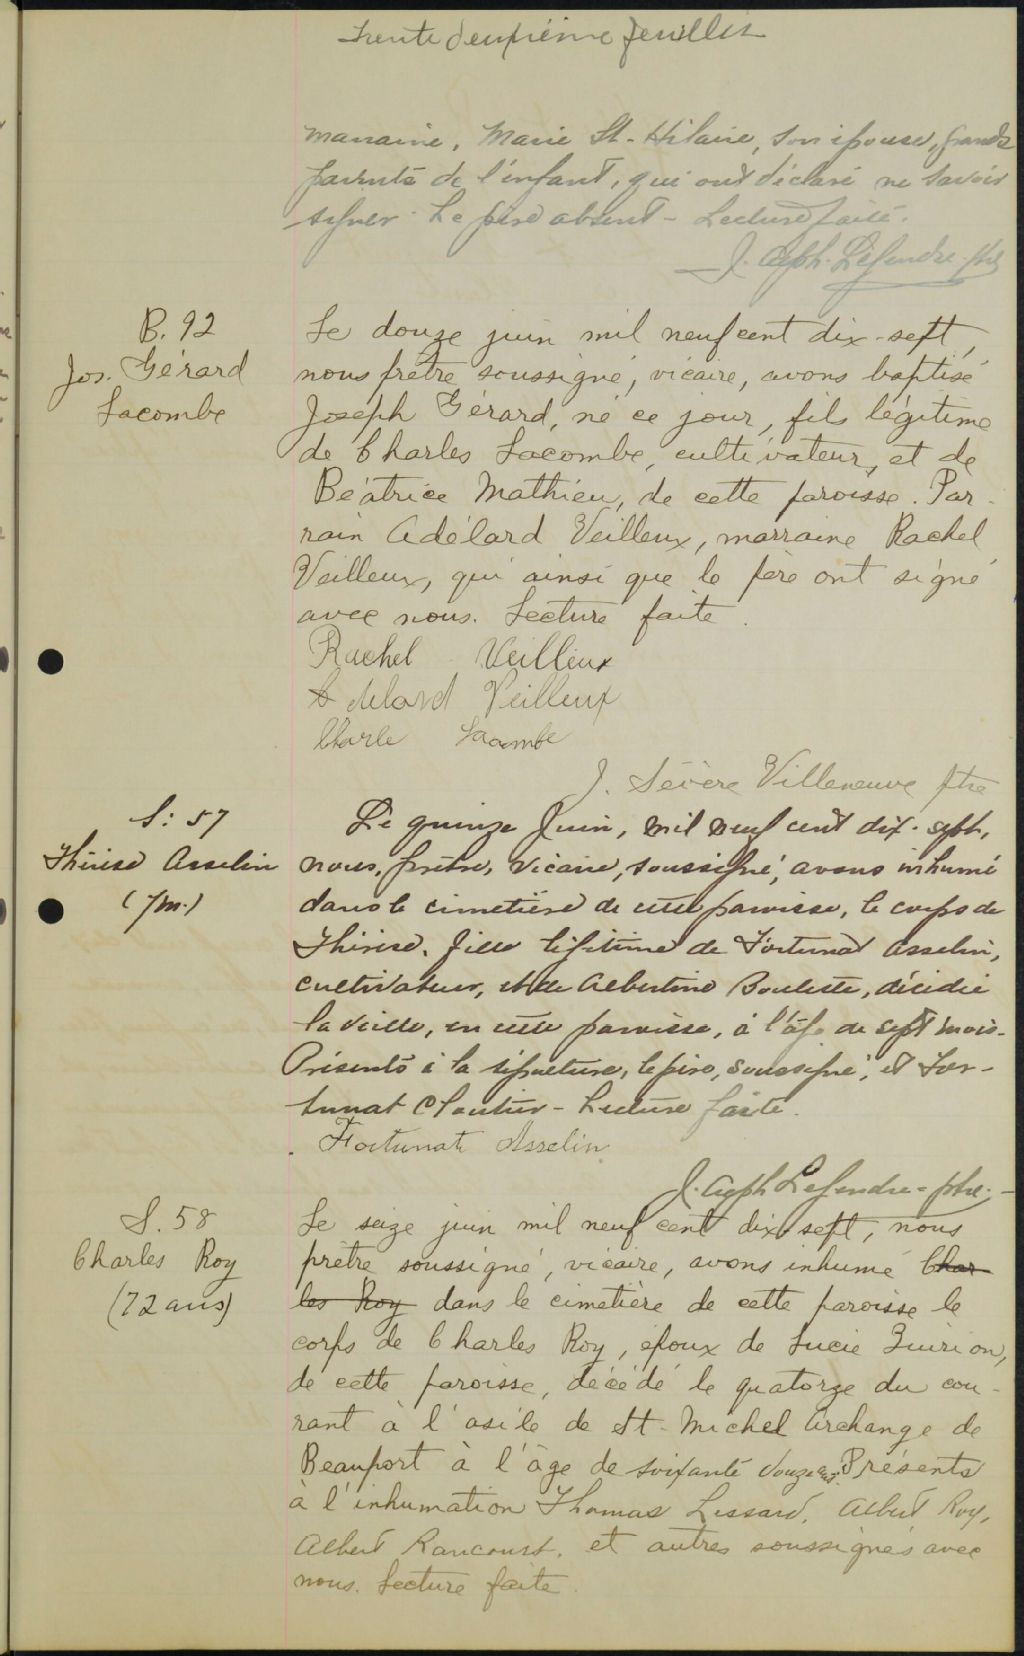 Trente deuxième feuillet
marraine, Marie St-Hilaire, son épouse, grands
parents de l'enfant, qui ont déclaré ne savoir
signer. Le père absent - Lecture faite.
J. Legendre ptre
B. 92
Jos. Gérard
Lacombe
Le douze juin mil neuf cent dix-sept,
nous prêtre soussigné, vicaire, avons baptisé
Joseph Gérard, né ce jour, fils légitime
de Charles Lacombe, cultivateur, et de
Béatrice Mathieu, de cette paroisse. Par-
rain Adélard Veilleux, marraine Rachel
Veilleux, qui ainsi que le père ont signé
avec nous. Lecture faite.
Rachel Veilleux
Adelard Veilleux
Charle Lacombe
J. Sévère Villeneuve ptre
S: 57
Thérèse Asselin
(7m.)
Le quinze Juin, mil neuf cent dix-sept,
nous, prêtre, vicaire, soussigné, avons inhumé
dans le cimetière de cette paroisse, le corps de
Thérèse, fille légitime de Fortunat Asselin,
cultivateur, et de Albertine Boulette, décédée
la veille, en cette paroisse, à l'âge de sept mois.
Présents à la sépulture, le père, soussigné, et For-
tunat Cloutier - Lecture faite.
Fortunat Asselin
J. Legendre - ptre.
S. 58
Charles Roy
(72 ans)
Le seize juin mil neuf cent dix sept, nous
prêtre soussigné, vicaire, avons inhumé Char
les Roy dans le cimetière de cette paroisse le
corps de Charles Roy, époux de Lucie Quirion,
de cette paroisse, décédé le quatorze du cou-
rant à l'asile de St-Michel Archange de
Beauport à l'âge de soixante douze ans. Présents
à l'inhumation Thomas Lessard, Albert Roy,
Albert Rancourt, et autres soussignés avec
nous. Lecture faite.